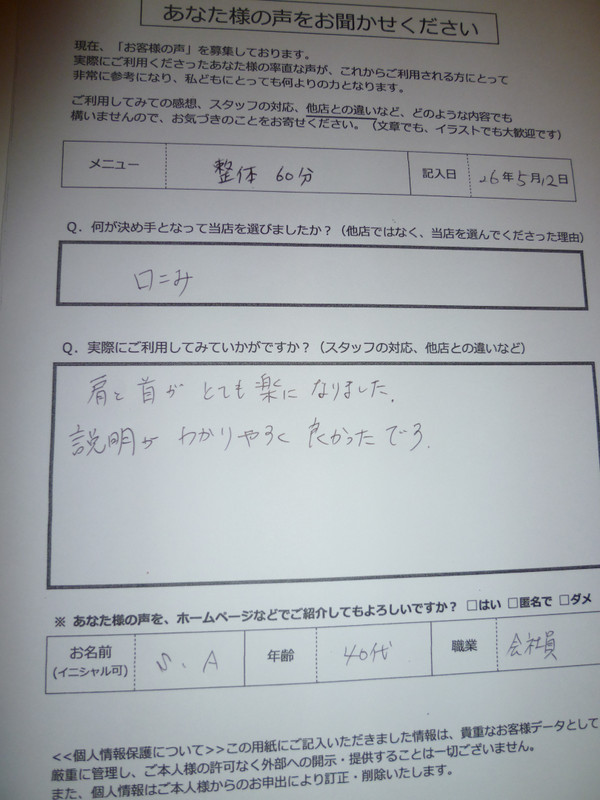 あなた様の声をお聞かせください
現在、「お客様の声」を募集しております。
実際にご利用くださったあなた様の率直な声が、これからご利用される方にとって
非常に参考になり、私どもにとっても何よりの力となります。
ご利用してみての感想、スタッフの対応、他店との違いなど、どのような内容でも
構いませんので、お気づきのことをお寄せください。（文章でも、イラストでも大歓迎です）
メニュー 整体 60分 記入日 26年5月12日
Q．何が決め手となって当店を選びましたか？（他店ではなく、当店を選んでくださった理由）
口こみ
Q．実際にご利用してみていかがですか？（スタッフの対応、他店との違いなど）
肩と首が とても楽に なりました.
説明が わかりやすく 良かったです.
※ あなた様の声を、ホームページなどでご紹介してもよろしいですか？ □はい □匿名で □ダメ
お名前 (イニシャル可) S. A 年齢 40代 職業 会社員
<<個人情報保護について>>この用紙にご記入いただきました情報は、貴重なお客様データとして
厳重に管理し、ご本人様の許可なく外部への開示・提供することは一切ございません。
また、個人情報はご本人様からのお申出により訂正・削除いたします。